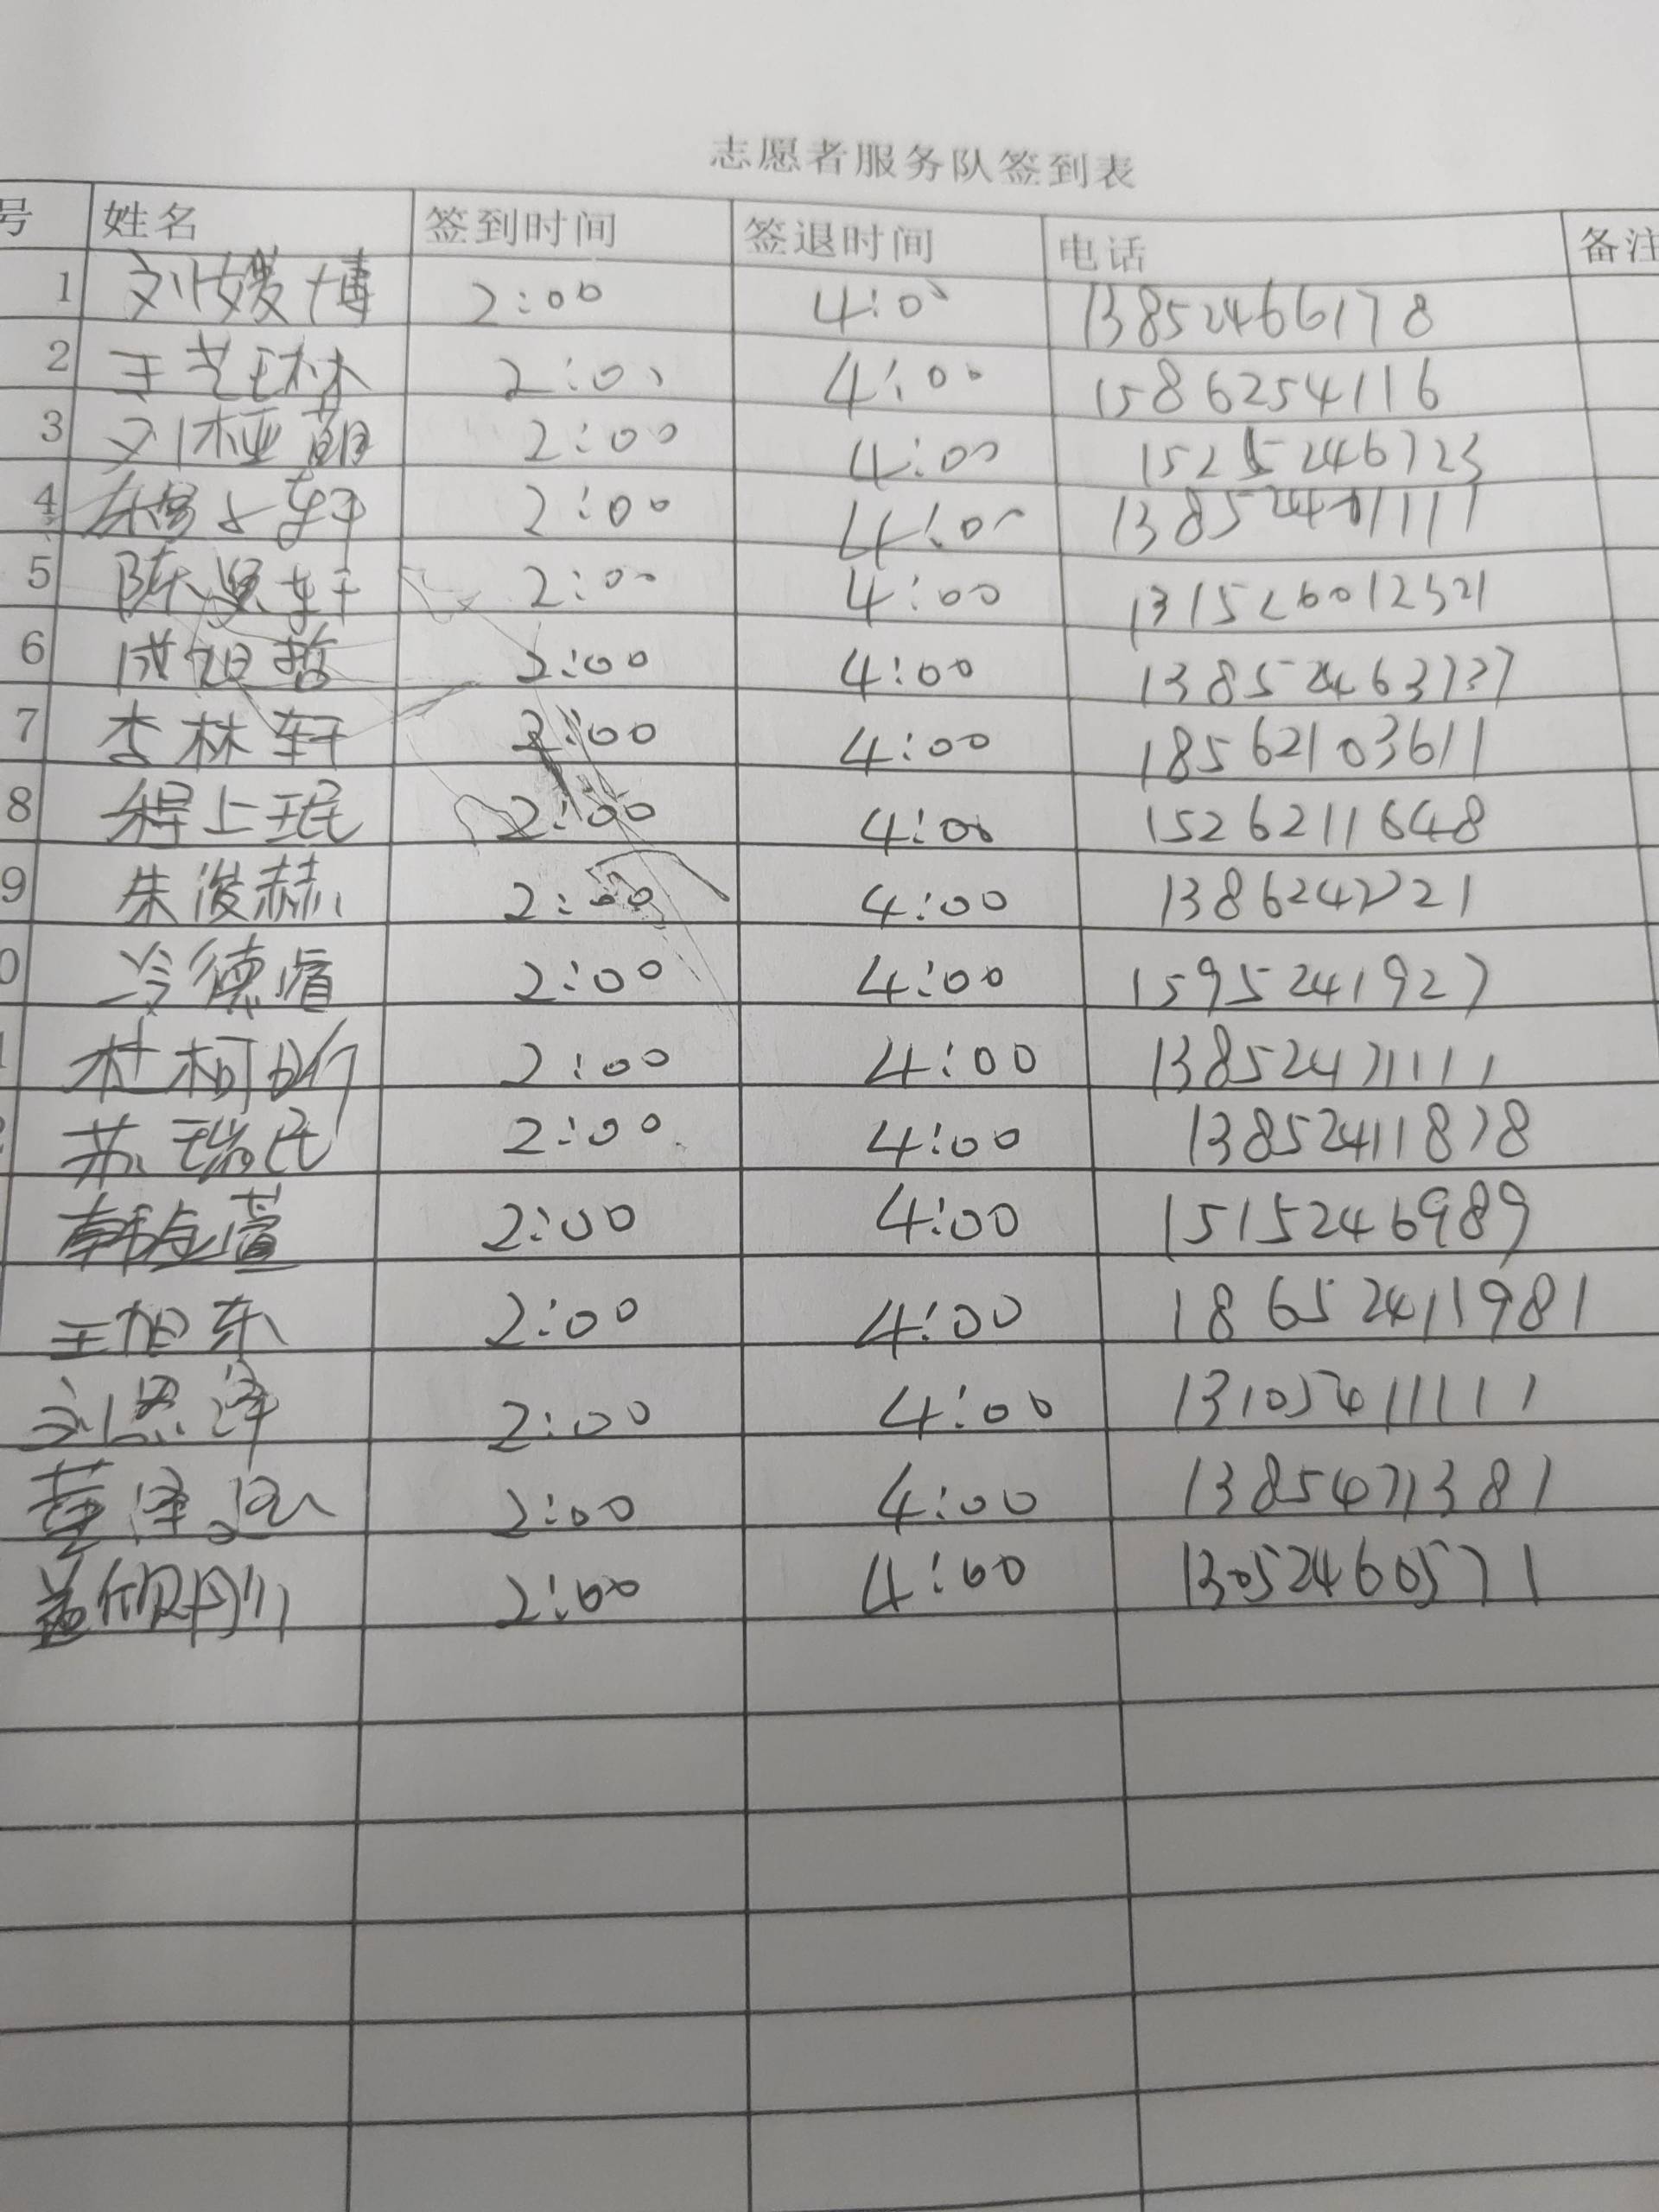 志愿者服务队签到表
号 姓名 签到时间 签退时间 电话 备注
1 刘媛博 2:00 4:00 13852466178
2 王艺林 2:00 4:00 1586254116
3 刘桠萌 2:00 4:00 1525246723
4 轩 2:00 4:00
5 陈 轩 2:00 4:00 131526012521
6 成旭哲 2:00 4:00 13852463737
7 李林轩 2:00 4:00 18562103611
8 程上珉 2:00 4:00 1526211648
9 朱浚赫 2:00 4:00
0 冷德 2:00 4:00 1595241927
杜柯昕 2:00 4:00 13852471111
苏瑞氏 2:00 4:00 13852411878
韩 萱 2:00 4:00 15152246989
王旭东 2:00 4:00 18652411981
刘恩泽 2:00 4:00 13105411111
董泽 2:00 4:00 1385471381
2:00 4:00 13052460571